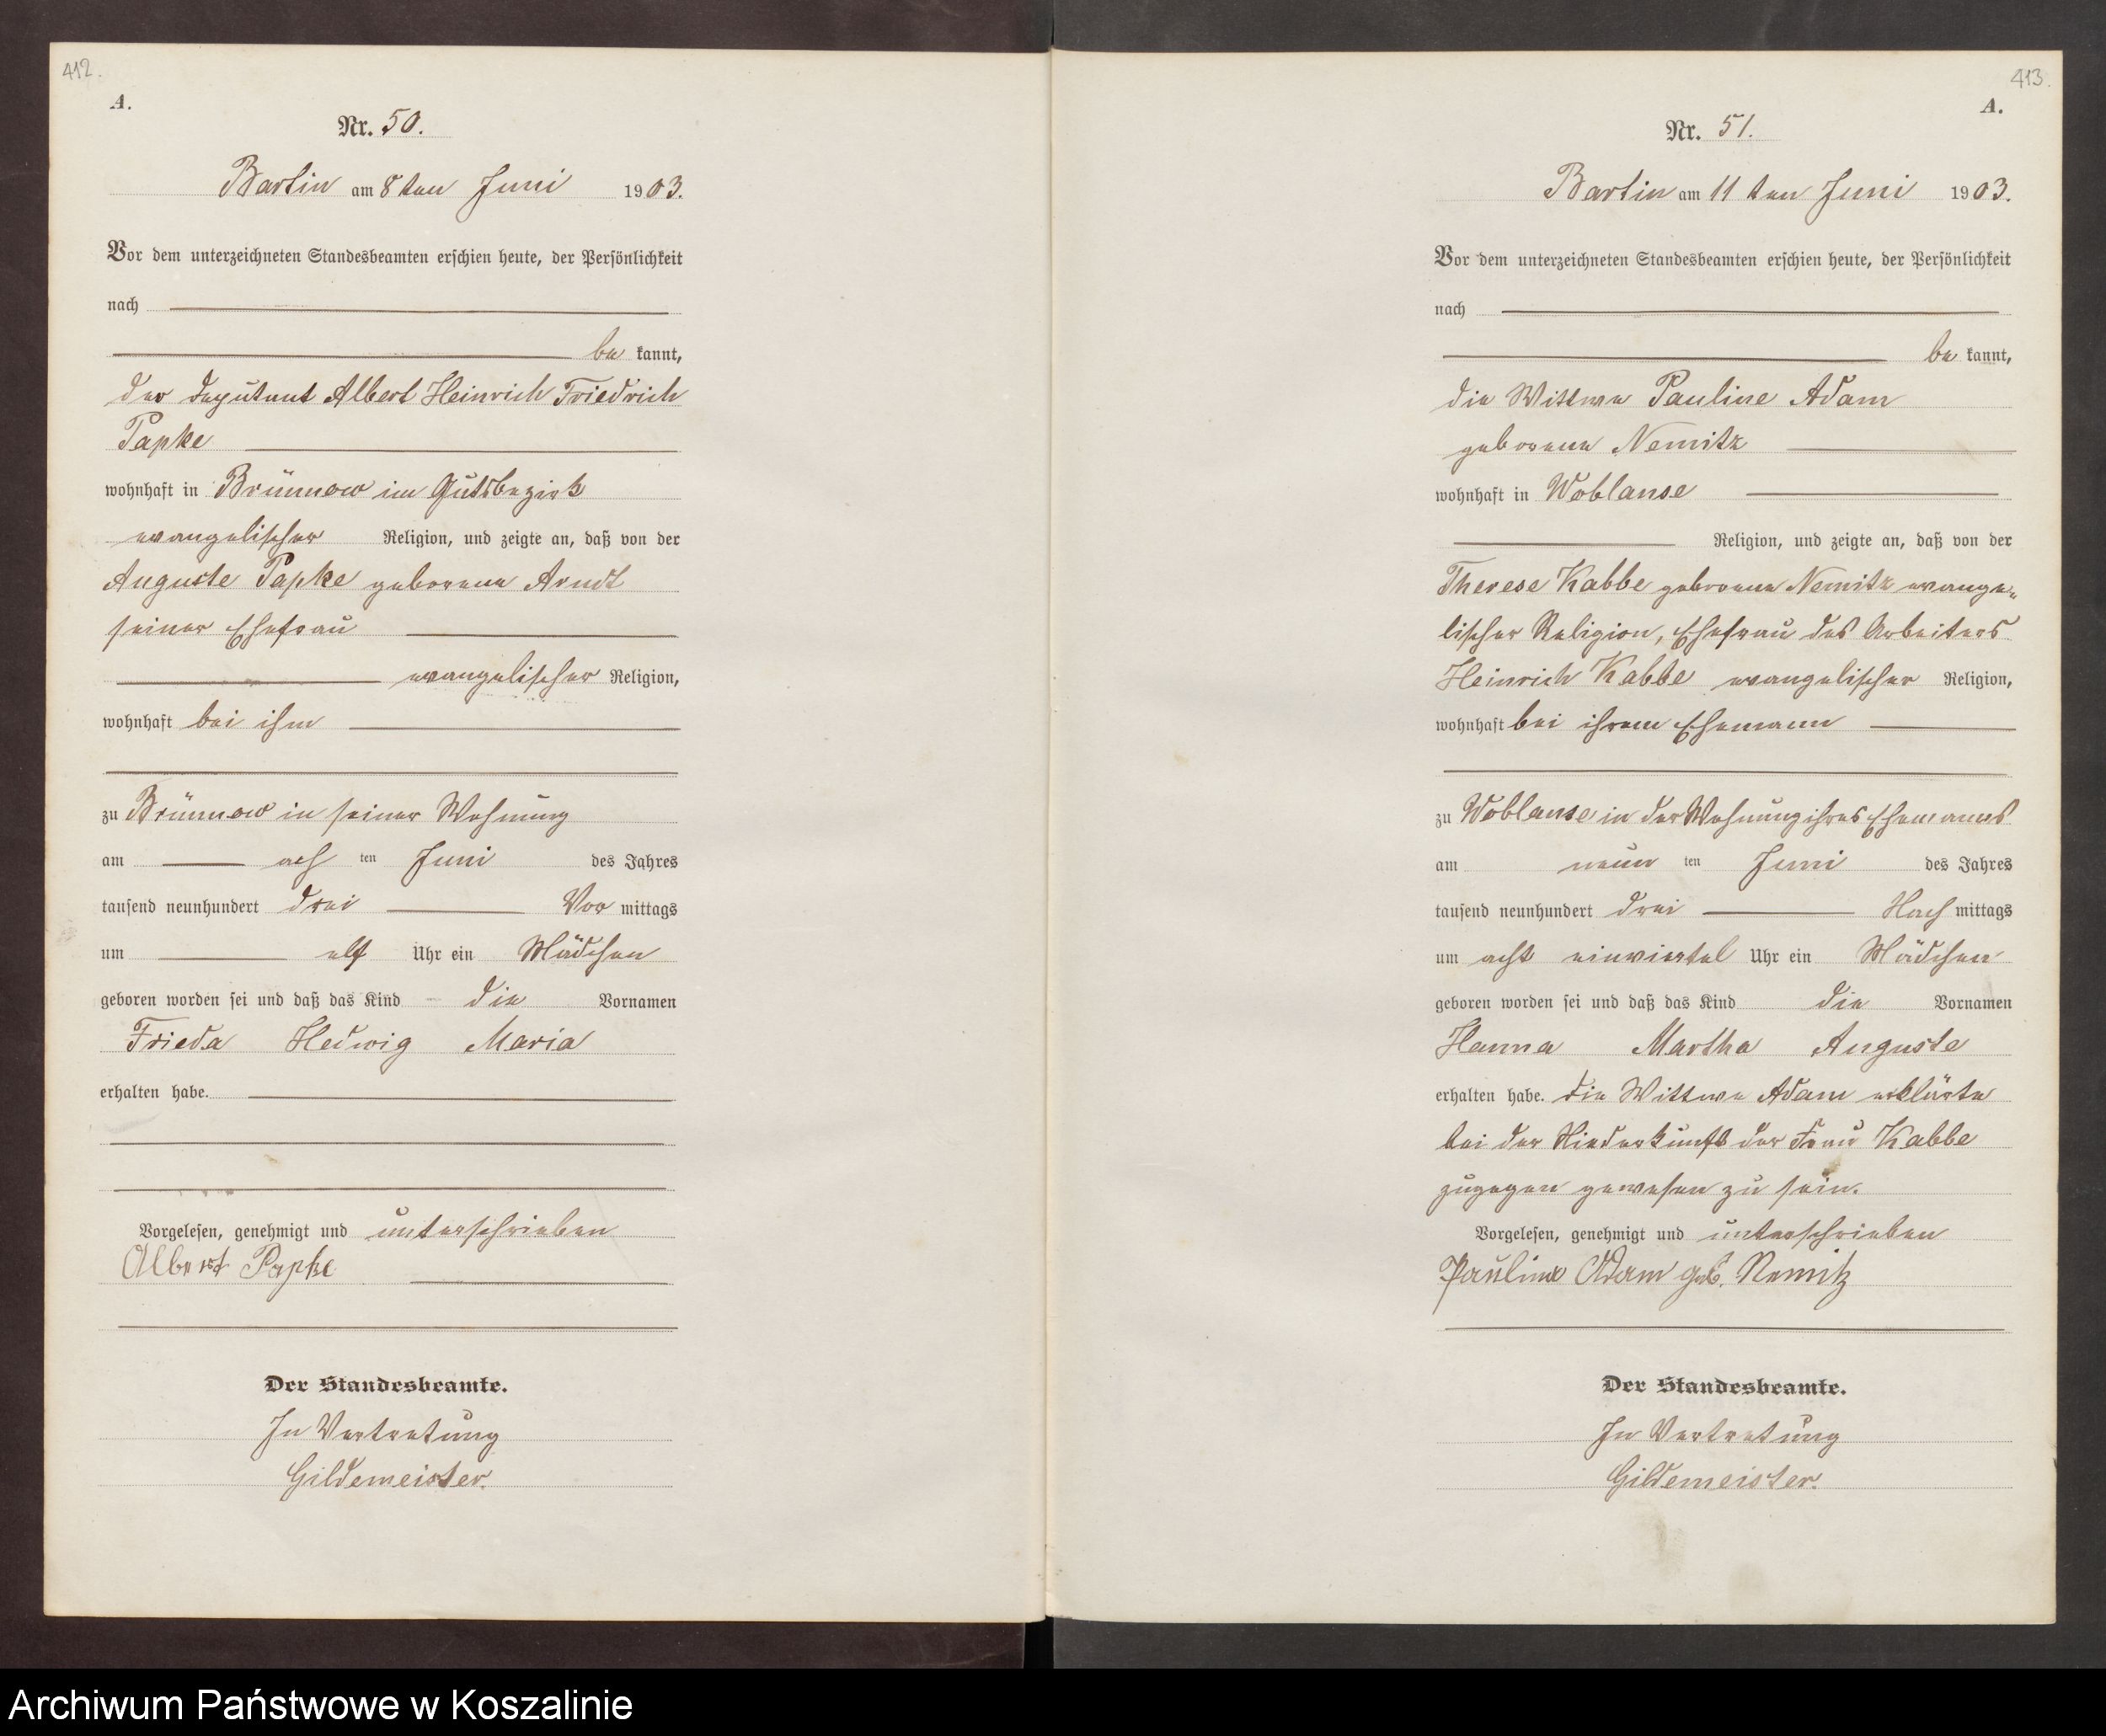 412.
A.
Nr. 50.
Bartin am 8ten Juni 1903.
Vor dem unterzeichneten Standesbeamten erschien heute, der Persönlichkeit
nach
be kannt,
der Deputant Albert Heinrich Friedrich
Papke
wohnhaft in Brünnow im Gutsbezirk
evangelischer Religion, und zeigte an, daß von der
Auguste Papke geborene Arndt
seiner Ehefrau
evangelischer Religion,
wohnhaft bei ihm
zu Brünnow in seiner Wohnung
am ach ten Juni des Jahres
tausend neunhundert drei Vor mittags
um elf Uhr ein Mädchen
geboren worden sei und daß das Kind die Vornamen
Frieda Hedwig Maria
erhalten habe.
Vorgelesen, genehmigt und unterschrieben
Albert Papke
Der Standesbeamte.
In Vertretung
Gildemeister.
413.
A.
Nr. 51.
Bartin am 11ten Juni 1903.
Vor dem unterzeichneten Standesbeamten erschien heute, der Persönlichkeit
nach
be kannt,
die Wittwe Pauline Adam
geborene Nemitz
wohnhaft in Woblanse
Religion, und zeigte an, daß von der
Therese Kabbe geborene Nemitz evange-
lischer Religion, Ehefrau des Arbeiters
Heinrich Kabbe evangelischer Religion,
wohnhaft bei ihrem Ehemann
zu Woblanse in der Wohnung ihres Ehemanns
am neun ten Juni des Jahres
tausend neunhundert drei Nach mittags
um acht einviertel Uhr ein Mädchen
geboren worden sei und daß das Kind die Vornamen
Hanna Martha Auguste
erhalten habe. Die Wittwe Adam erklärte
bei der Niederkunft der Frau Kabbe
zugegen gewesen zu sein.
Vorgelesen, genehmigt und unterschrieben
Pauline Adam geb. Nemitz
Der Standesbeamte.
In Vertretung
Gildemeister.
Archiwum Państwowe w Koszalinie